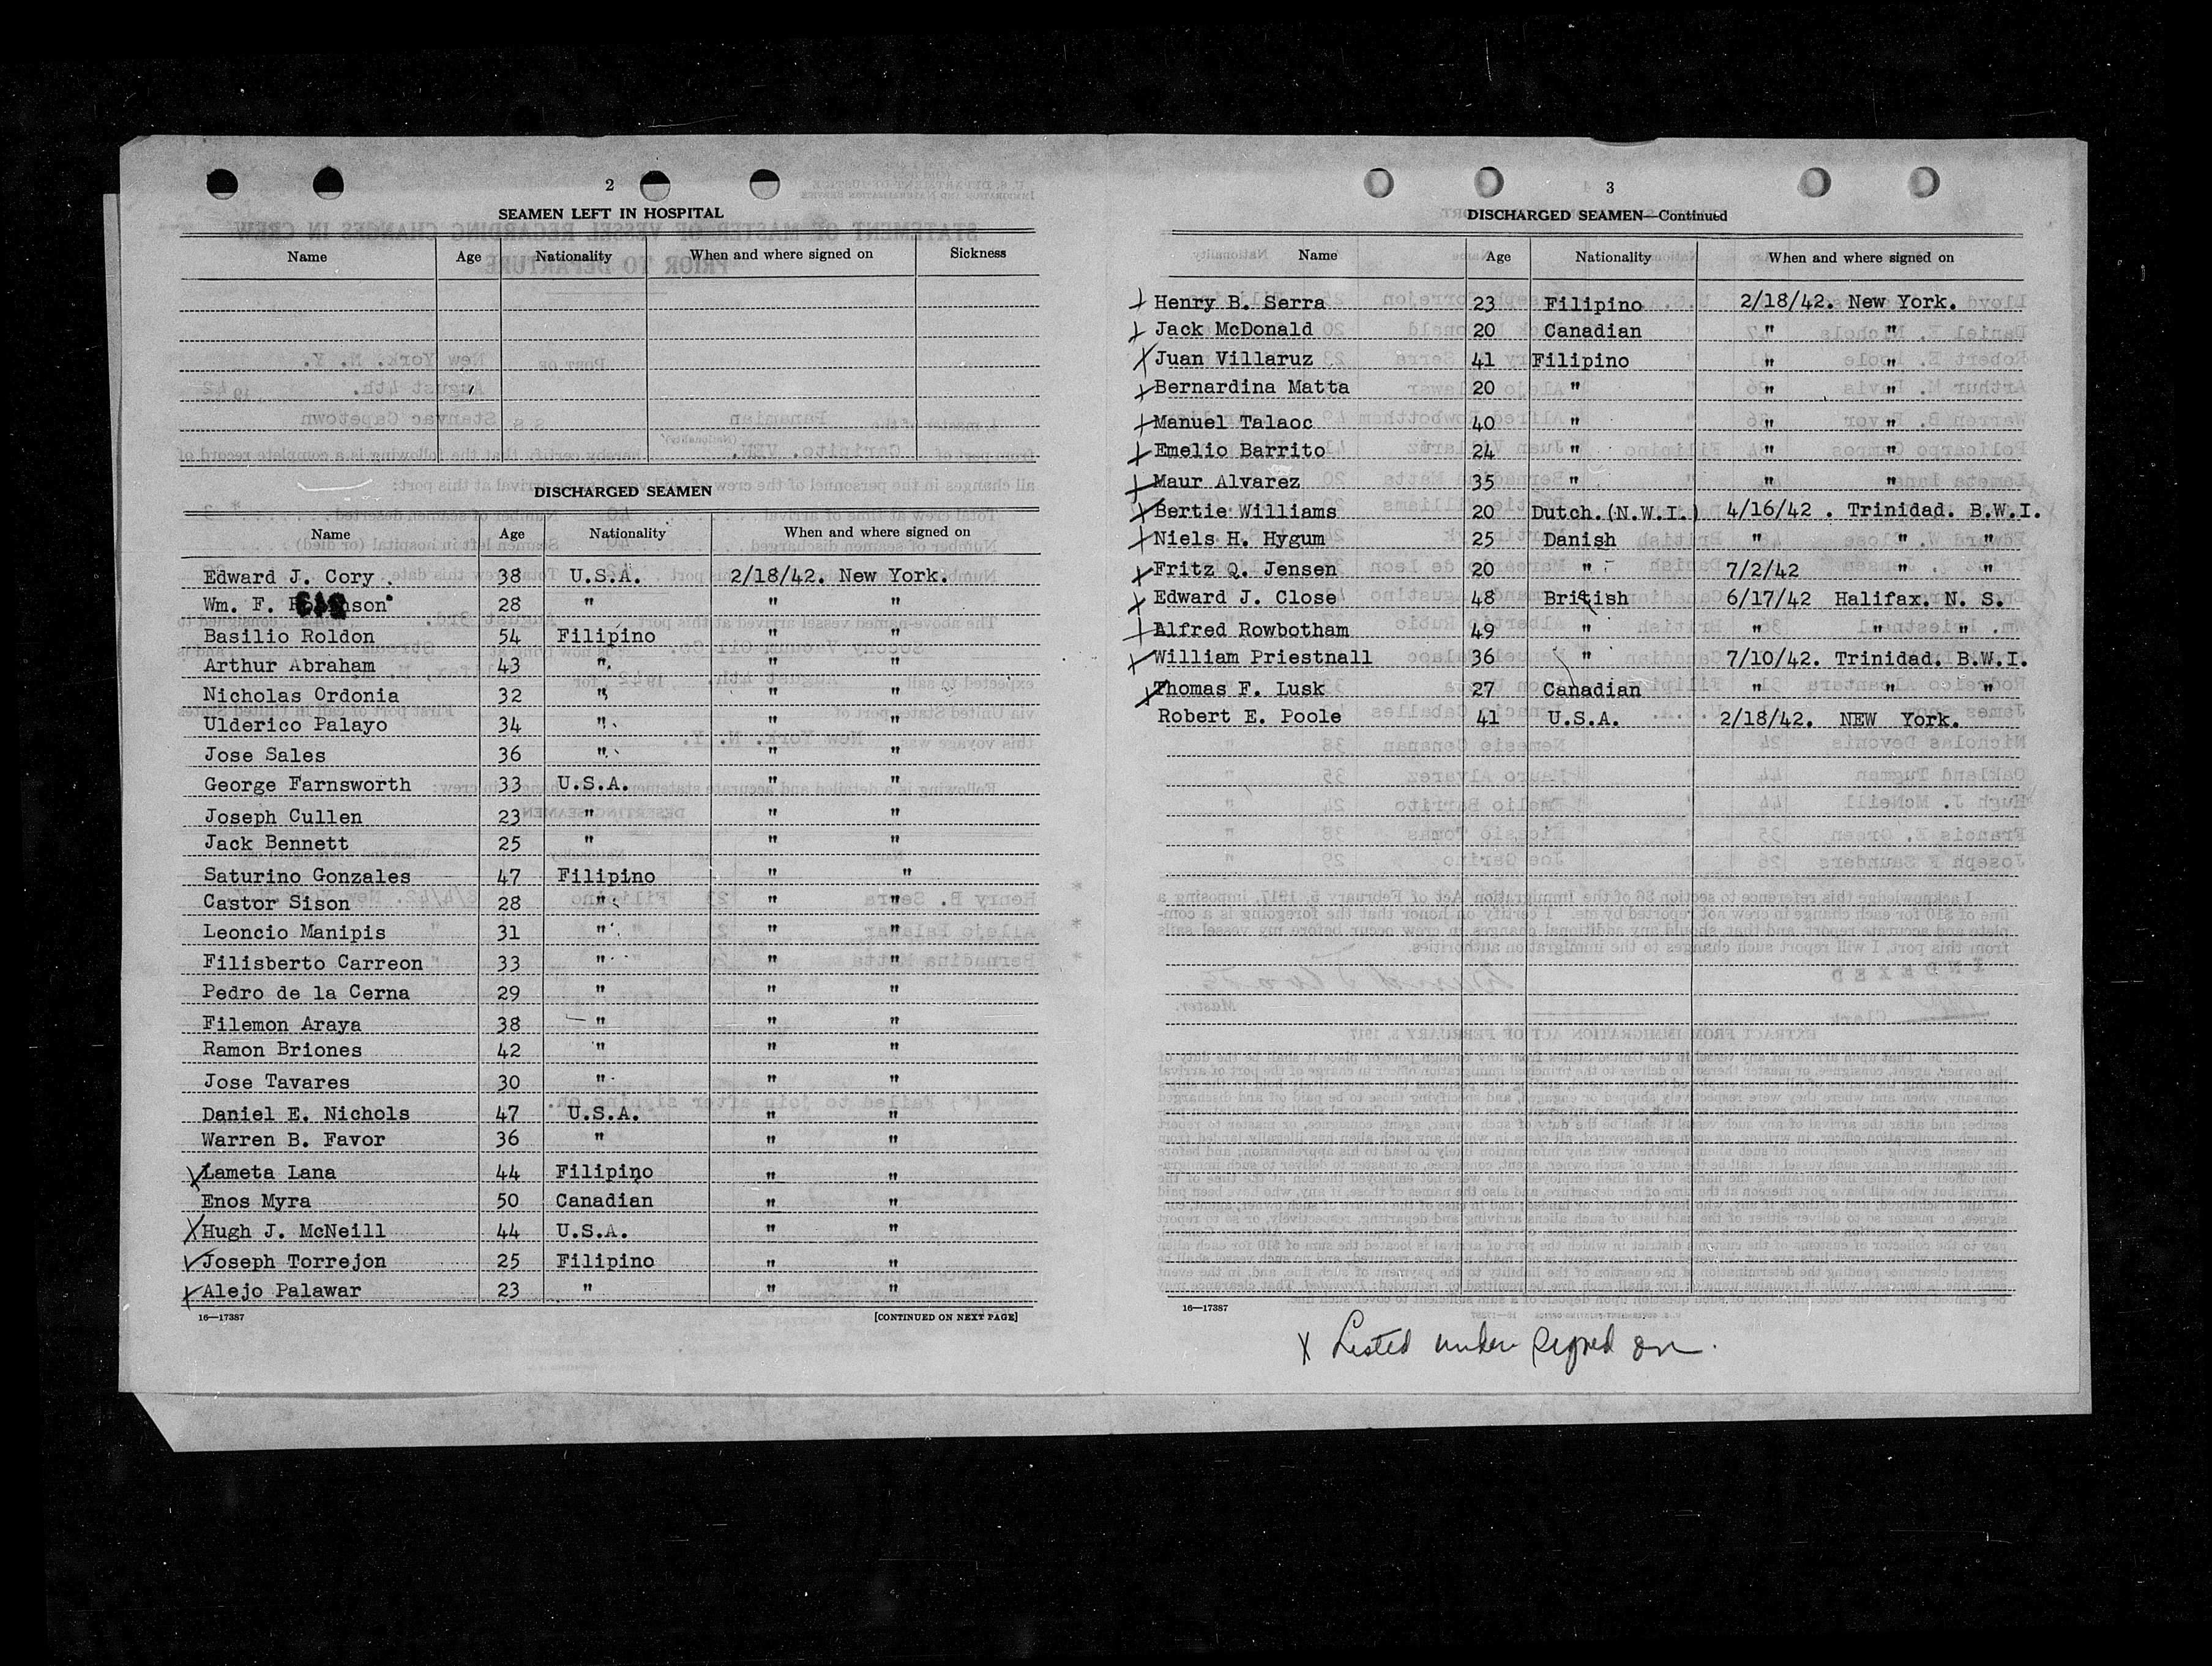 2
SEAMEN LEFT IN HOSPITAL
Name Age Nationality When and where signed on Sickness
DISCHARGED SEAMEN
Name Age Nationality When and where signed on
Edward J. Cory 38 U.S.A. 2/18/42. New York.
Wm. F. 28 " " "
Basilio Roldon 54 Filipino " "
Arthur Abraham 43 " " "
Nicholas Ordonia 32 " " "
Ulderico Palayo 34 " " "
Jose Sales 36 " " "
George Farnsworth 33 U.S.A. " "
Joseph Cullen 23 " " "
Jack Bennett 25 " " "
Saturino Gonzales 47 Filipino " "
Castor Sison 28 " " "
Leoncio Manipis 31 " " "
Filisberto Carreon 33 " " "
Pedro de la Cerna 29 " " "
Filemon Araya 38 " " "
Ramon Briones 42 " " "
Jose Tavares 30 " " "
Daniel E. Nichols 47 U.S.A. " "
Warren B. Favor 36 " " "
X Lameta Lana 44 Filipino " "
Enos Myra 50 Canadian " "
X Hugh J. McNeill 44 U.S.A. " "
X Joseph Torrejon 25 Filipino " "
X Alejo Palawar 23 " " "
16—17387 [CONTINUED ON NEXT PAGE]
3
DISCHARGED SEAMEN—Continued
Name Age Nationality When and where signed on
X Henry B. Serra 23 Filipino 2/18/42. New York.
X Jack McDonald 20 Canadian " "
X Juan Villaruz 41 Filipino " "
X Bernardina Matta 20 " " "
X Manuel Talaoc 40 " " "
X Emelio Barrito 24 " " "
X Maur Alvarez 35 " " "
X Bertie Williams 20 Dutch.(N.W.I.) 4/16/42 . Trinidad. B.W.I.
X Niels H. Hygum 25 Danish " " "
X Fritz Q. Jensen 20 " 7/2/42 " "
X Edward J. Close 48 British 6/17/42 Halifax. N. S.
X Alfred Rowbotham 49 " " " "
X William Priestnall 36 " 7/10/42. Trinidad. B.W.I.
X Thomas F. Lusk 27 Canadian " " "
Robert E. Poole 41 U.S.A. 2/18/42. NEW York.
16—17387
X Listed under signed on.